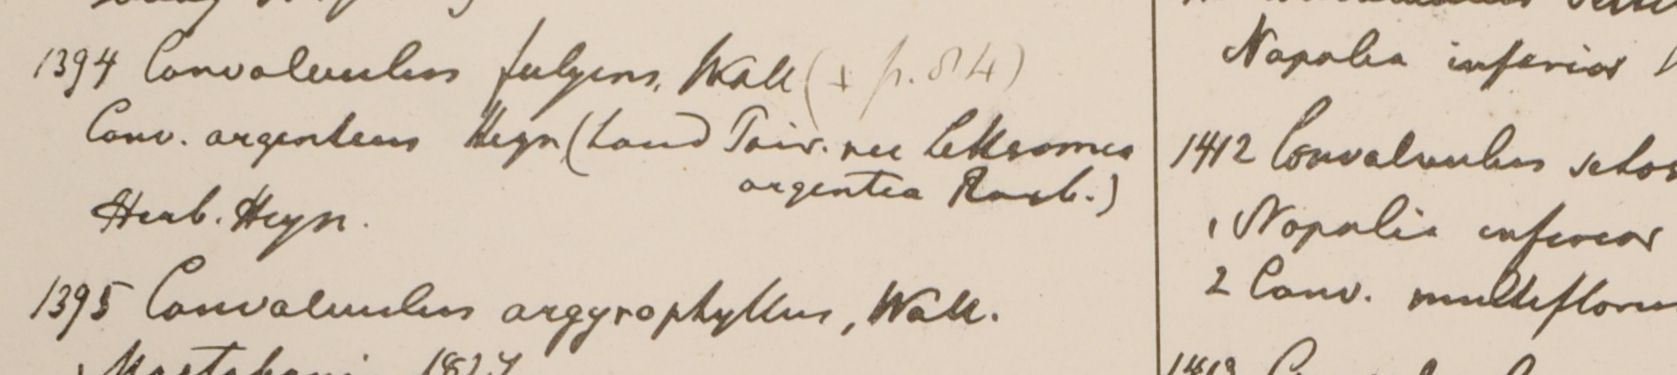 1394 Convolvulus fulgens, Wall (+ p. 84)
Conv. argenteus Heyn (haud Poir. nec Lettsomia
argentea Roxb.)
Herb. Heyn.
1395 Convolvulus argyrophyllus, Wall.
1 Martabani 1827
Napalia inferior
1412 Convolvulus
1 Napalia inferior
2 Conv.
1413